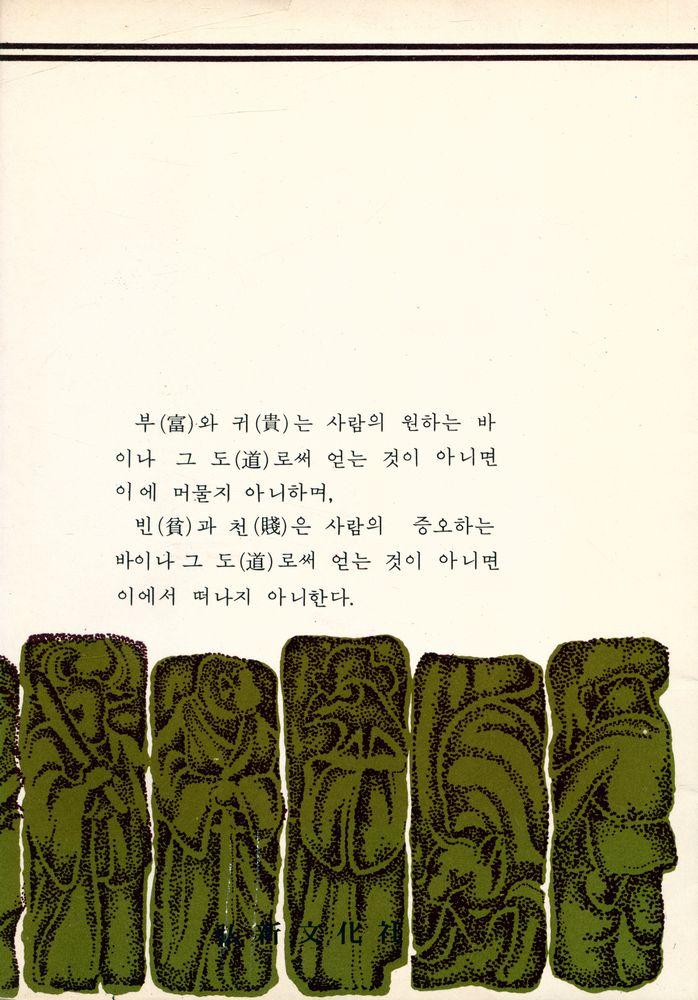 부(富)와 귀(貴)는 사람의 원하는 바
이나 그 도(道)로써 얻는 것이 아니면
이에 머물지 아니하며,
빈(貧)과 천(賤)은 사람의 증오하는
바이나 그 도(道)로써 얻는 것이 아니면
이에서 떠나지 아니한다.
弘新文化社